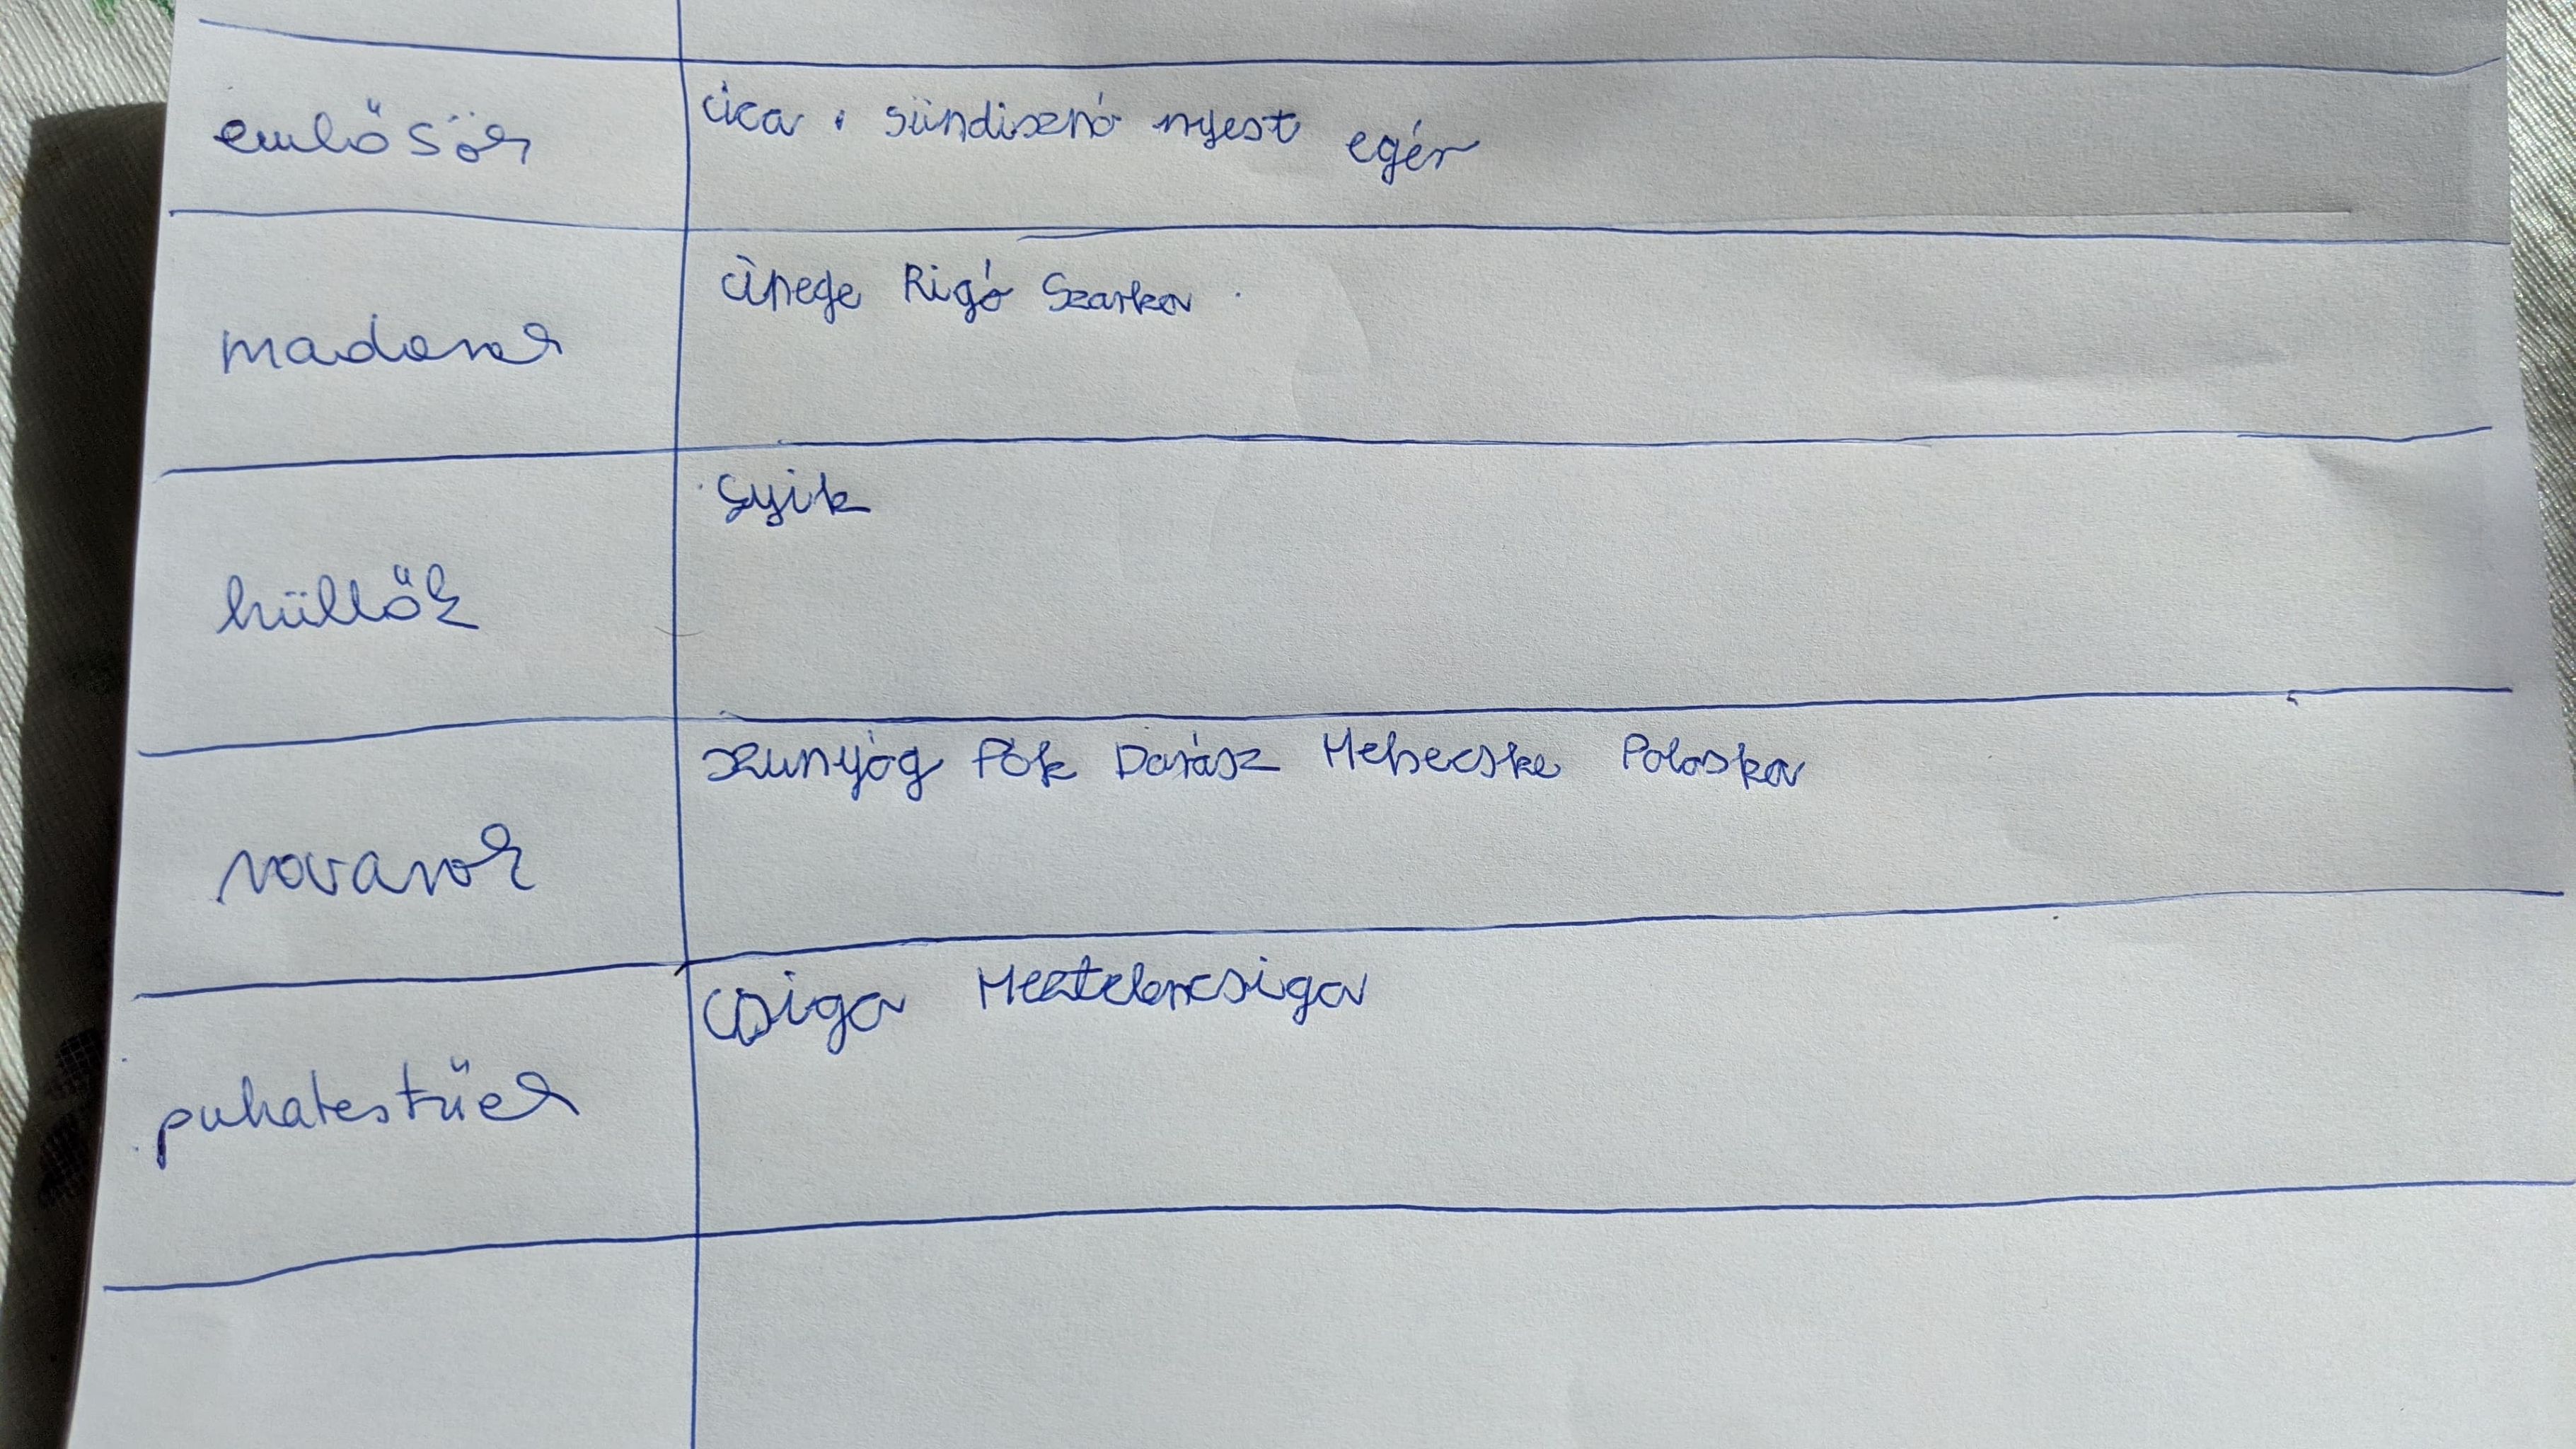 emlősök
cica sündisznó nyest egér
madarak
cinege Rigó Szarka
hüllők
gyik
rovarok
szunyóg Pók Darázs Mehecske Poloska
puhatestűek
csiga Meztelencsiga